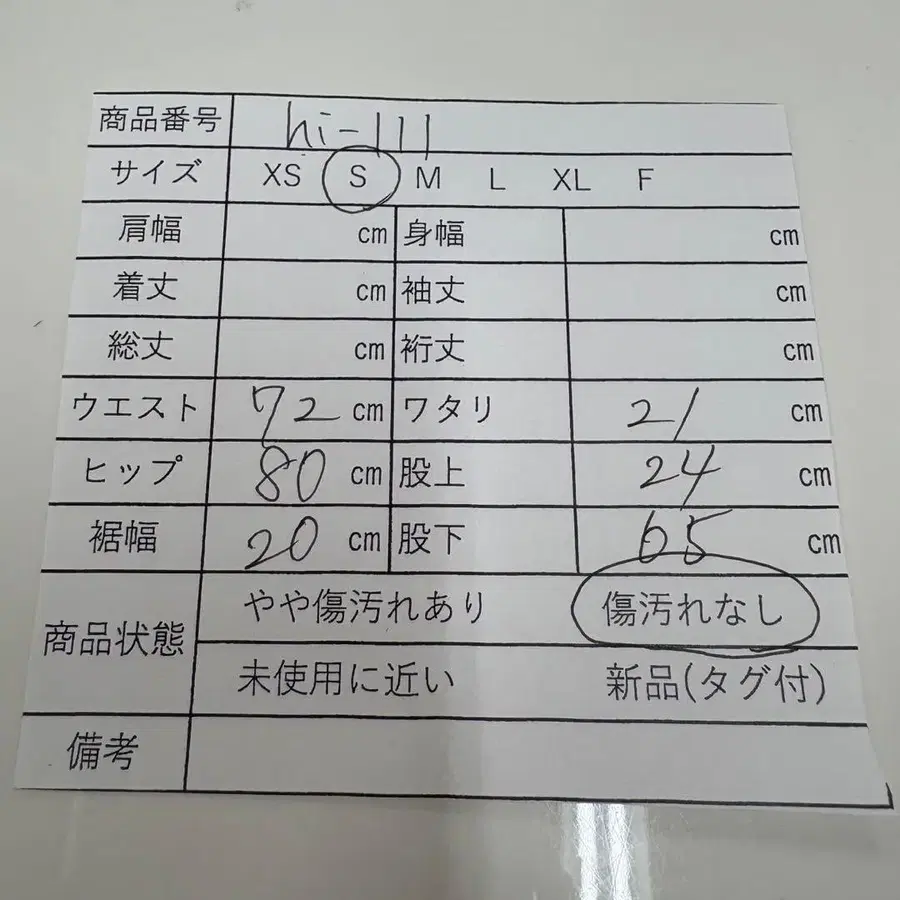 商品番号 hi-111
サイズ XS S M L XL F
肩幅 cm 身幅 cm
着丈 cm 袖丈 cm
総丈 cm 裄丈 cm
ウエスト 72 cm ワタリ 21 cm
ヒップ 80 cm 股上 24 cm
裾幅 20 cm 股下 65 cm
商品状態 やや傷汚れあり 傷汚れなし
未使用に近い 新品(タグ付)
備考